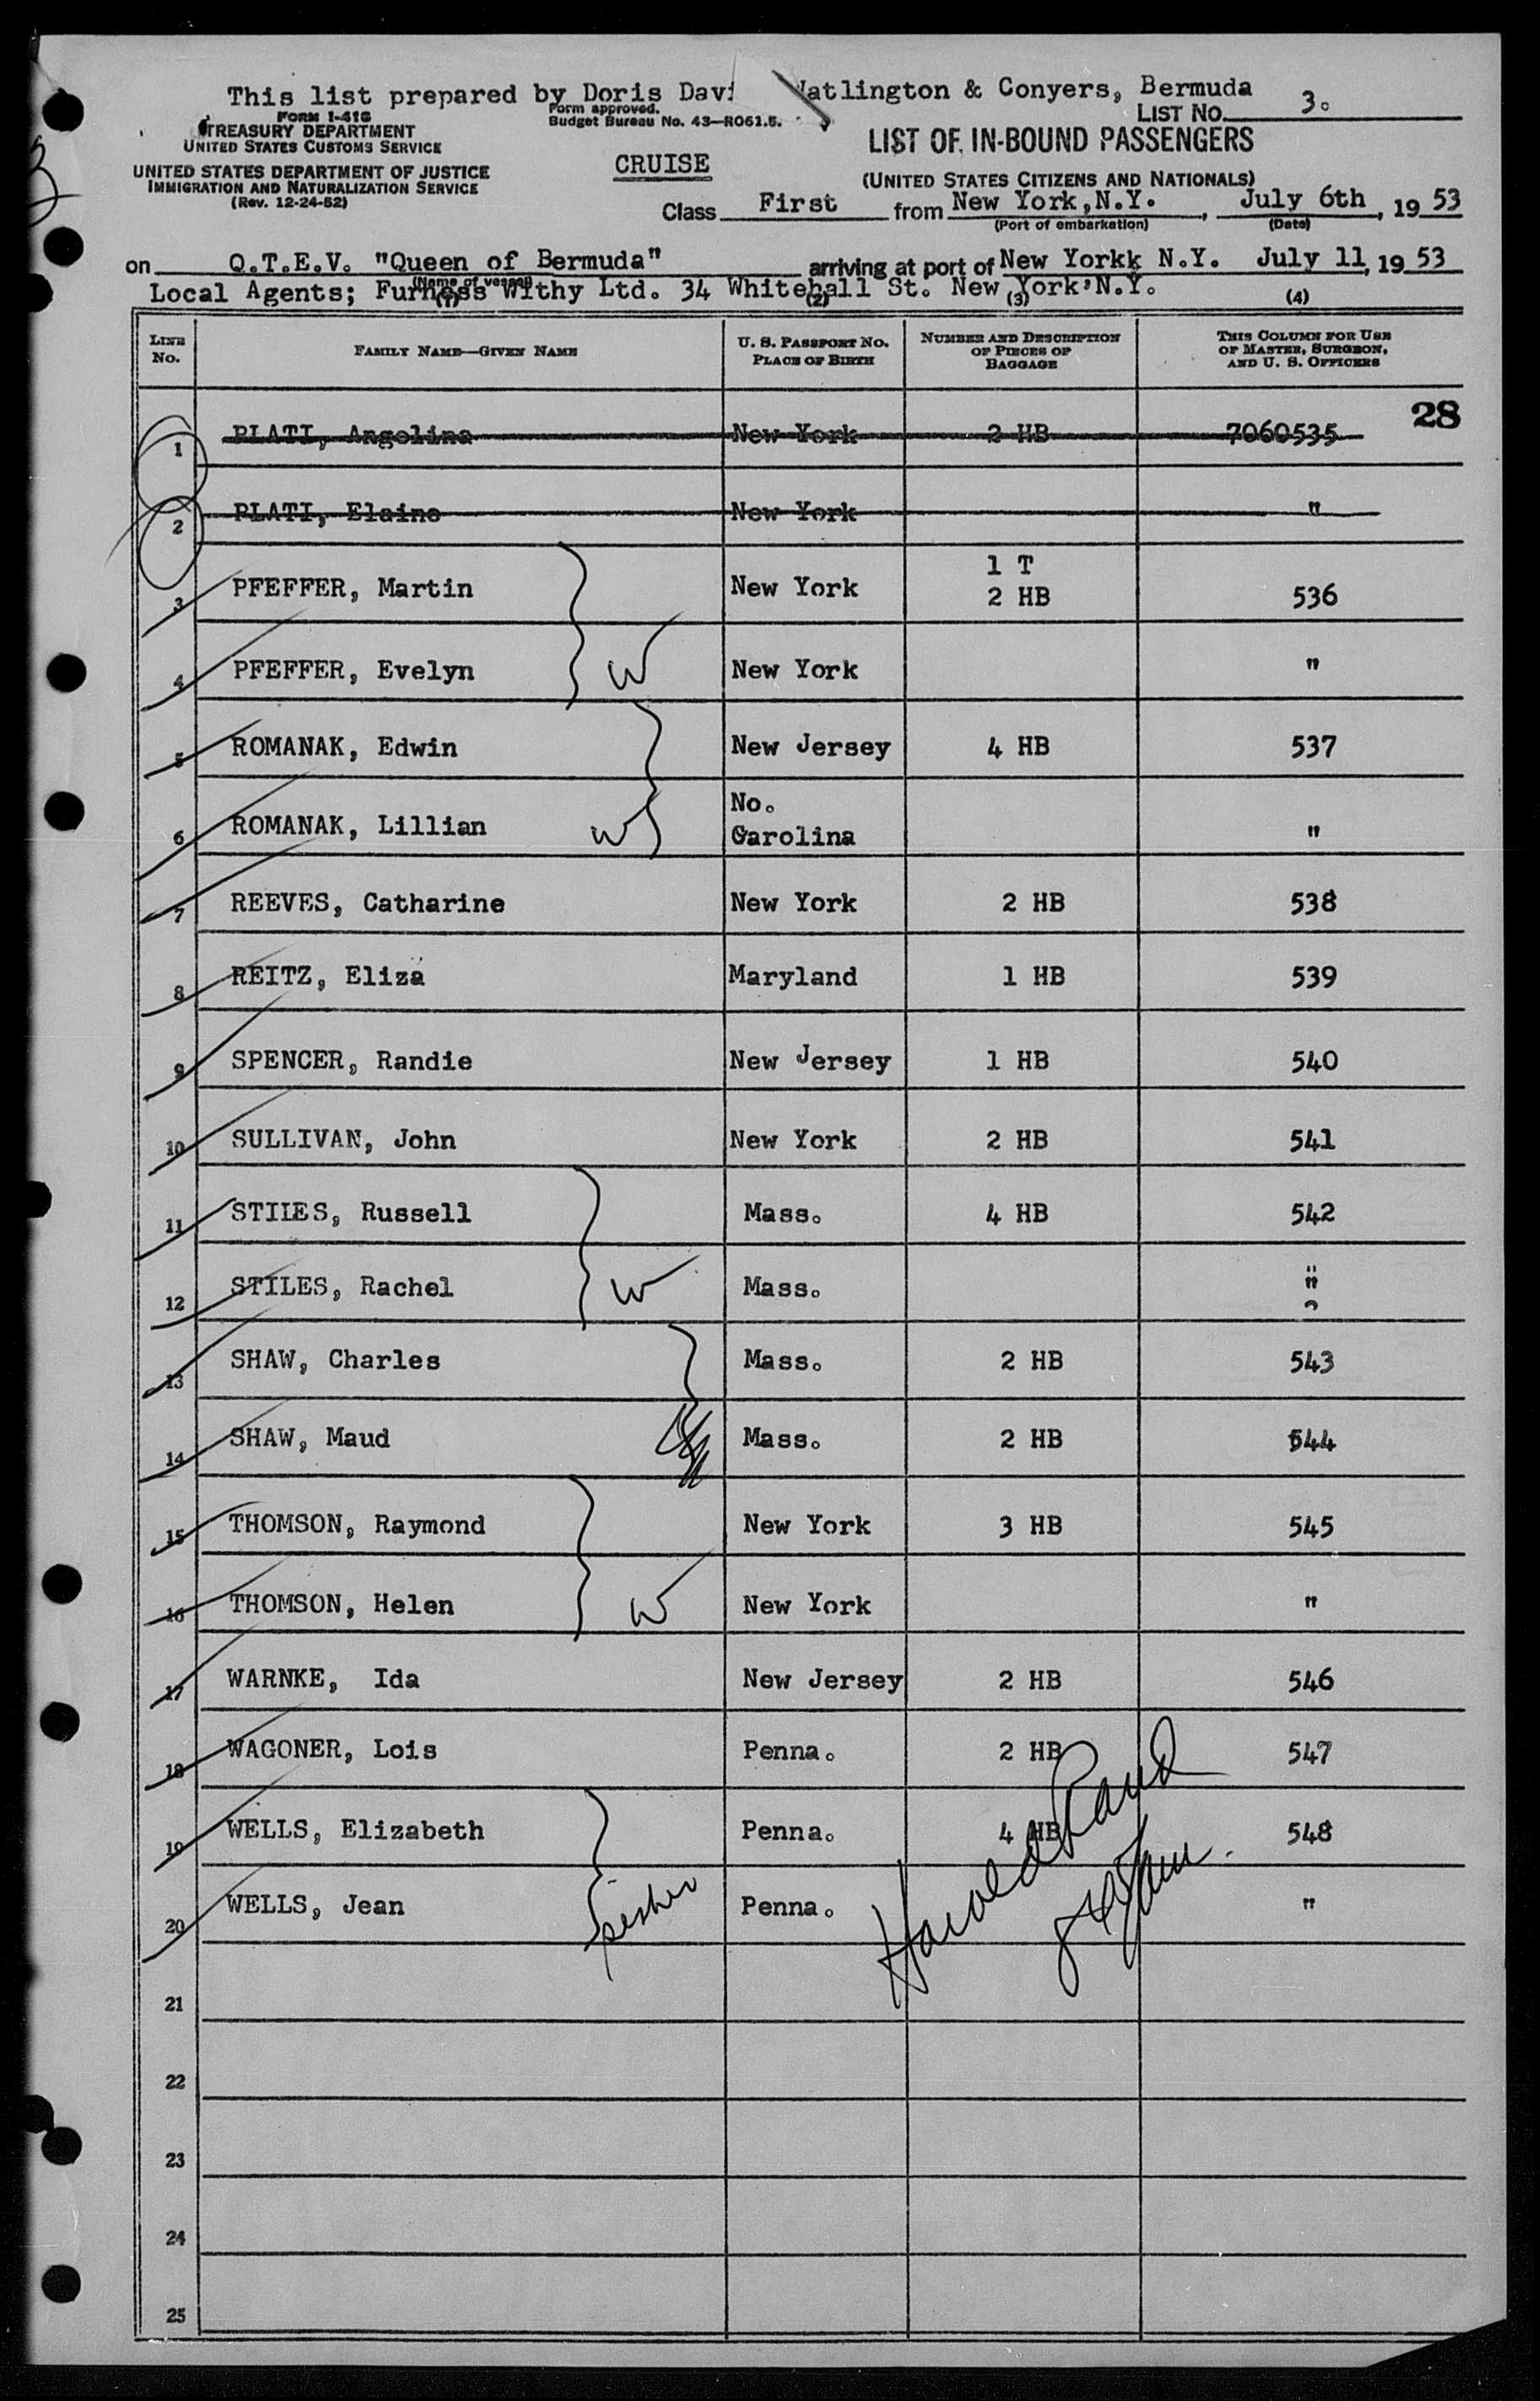 This list prepared by Doris Davi Watlington & Conyers, Bermuda
FORM I-416
TREASURY DEPARTMENT
UNITED STATES CUSTOMS SERVICE
UNITED STATES DEPARTMENT OF JUSTICE
IMMIGRATION AND NATURALIZATION SERVICE
(Rev. 12-24-52)
Form approved.
Budget Bureau No. 43—R061.5.
LIST No. 3.
LIST OF IN-BOUND PASSENGERS
(UNITED STATES CITIZENS AND NATIONALS)
CRUISE
Class First from New York, N.Y. , July 6th , 19 53
(Port of embarkation) (Date)
on Q.T.E.V. "Queen of Bermuda" arriving at port of New Yorkk N.Y. July 11, 19 53
(Name of vessel)
Local Agents; Furness Withy Ltd. 34 Whitehall St. New York, N.Y.
(1) (2) (3) (4)
LINE No. FAMILY NAME—GIVEN NAME U. S. PASSPORT NO. PLACE OF BIRTH NUMBER AND DESCRIPTION OF PIECES OF BAGGAGE THIS COLUMN FOR USE OF MASTER, SURGEON, AND U. S. OFFICERS
28
1 PLATI, Angelina New York 2 HB 7060535
2 PLATI, Elaine New York "
3 PFEFFER, Martin New York 1 T 2 HB 536
4 PFEFFER, Evelyn W New York "
5 ROMANAK, Edwin New Jersey 4 HB 537
6 ROMANAK, Lillian W No. Carolina "
7 REEVES, Catharine New York 2 HB 538
8 REITZ, Eliza Maryland 1 HB 539
9 SPENCER, Randie New Jersey 1 HB 540
10 SULLIVAN, John New York 2 HB 541
11 STILES, Russell Mass. 4 HB 542
12 STILES, Rachel W Mass. "
13 SHAW, Charles Mass. 2 HB 543
14 SHAW, Maud Mass. 2 HB 544
15 THOMSON, Raymond New York 3 HB 545
16 THOMSON, Helen W New York "
17 WARNKE, Ida New Jersey 2 HB 546
18 WAGONER, Lois Penna. 2 HB 547
19 WELLS, Elizabeth Penna. 4 HB 548
20 WELLS, Jean sister Penna. "
Harold Rand
21
22
23
24
25